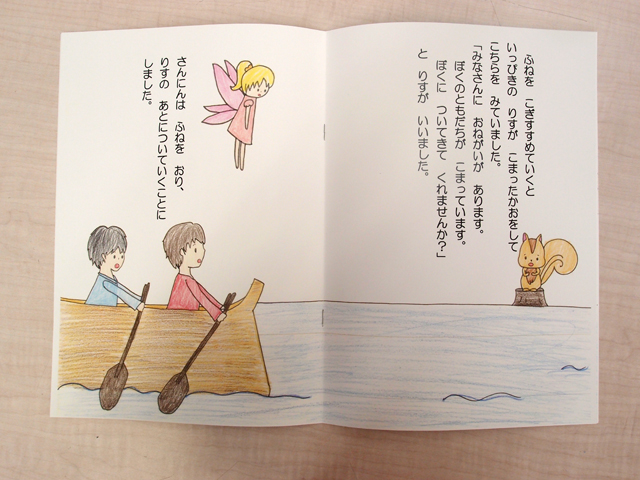 ふねを こぎすすめていくと
いっぴきの りすが こまったかおをして
こちらを みていました。
「みなさんに おねがいが あります。
ぼくのともだちが こまっています。
ぼくに ついてきて くれませんか？」
と りすが いいました。
さんにんは ふねを おり、
りすの あとについていくことに
しました。